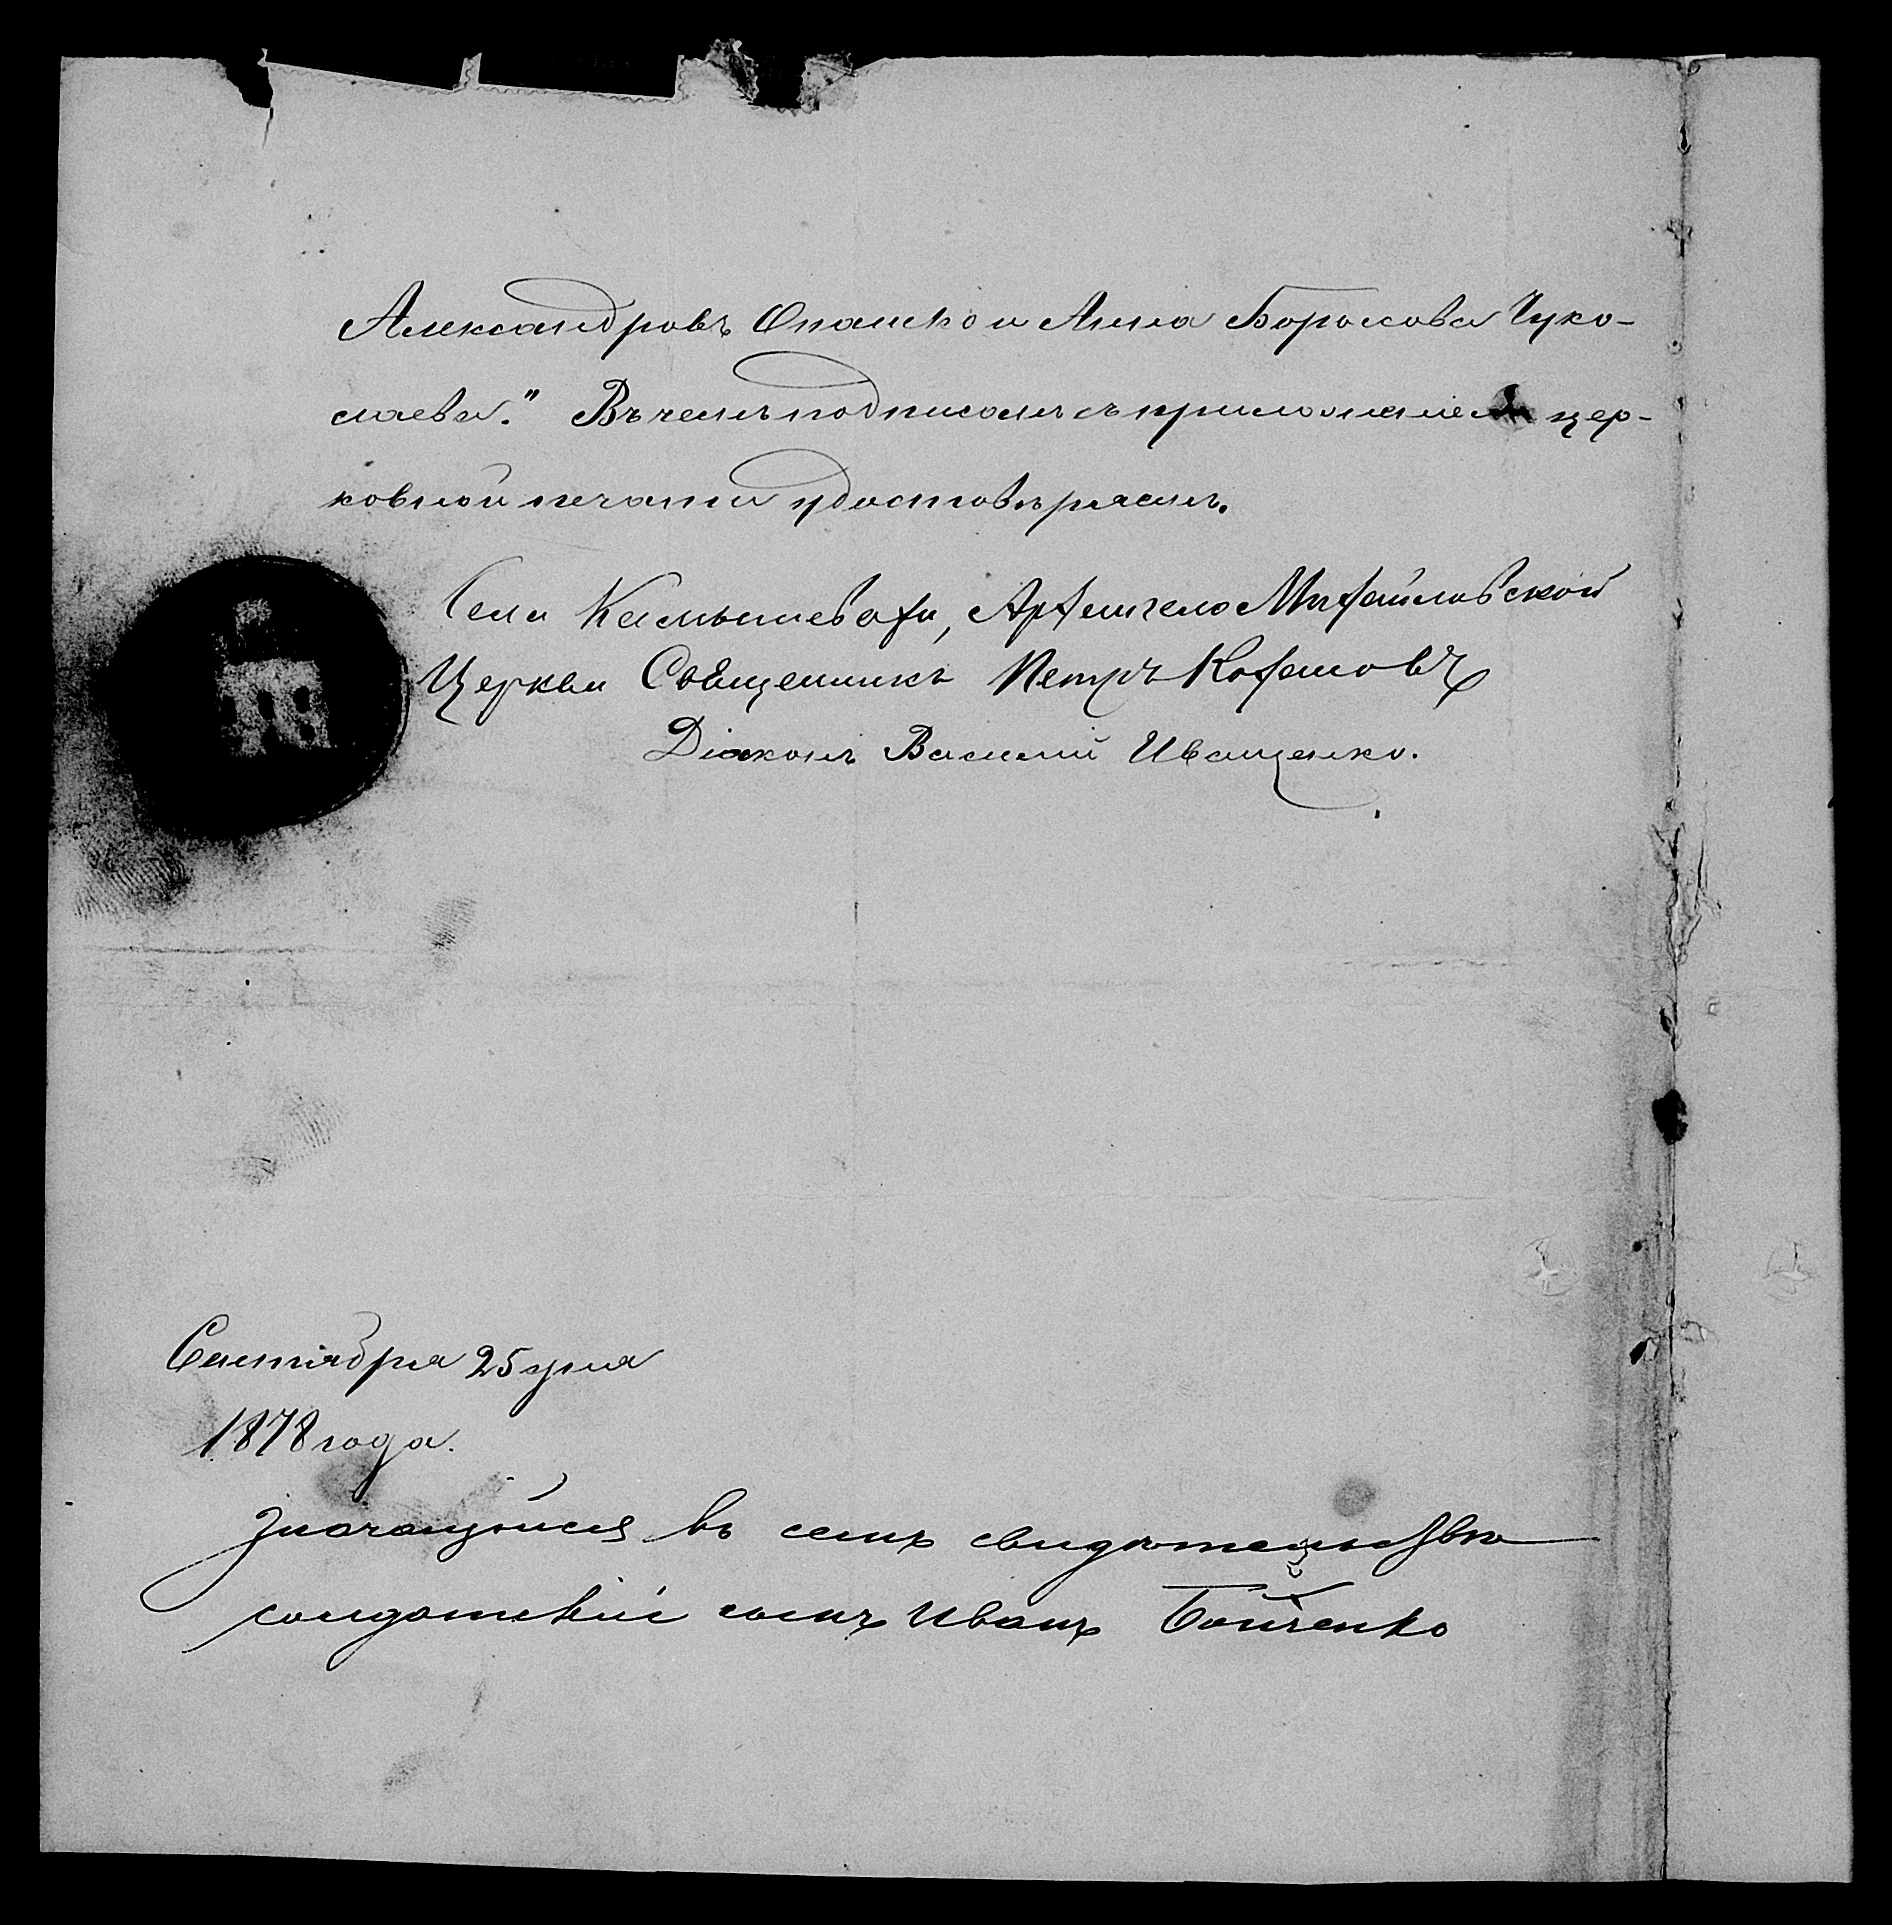 Александровъ Опашко и Анна Борисова Чуко-
лаева." Въ чемъ подписомъ съ приложеніемъ цер-
ковной печати удостовѣряемъ.
Села Камышевахи, Архангело Михайловской
Церкви Священникъ Петръ Кохановъ
Діаконъ Василій Иващенко.
Сентября 25 дня
1878 года.
Значащійся въ семъ свидѣтельствѣ
солдатскій сынъ Иванъ Бойченко